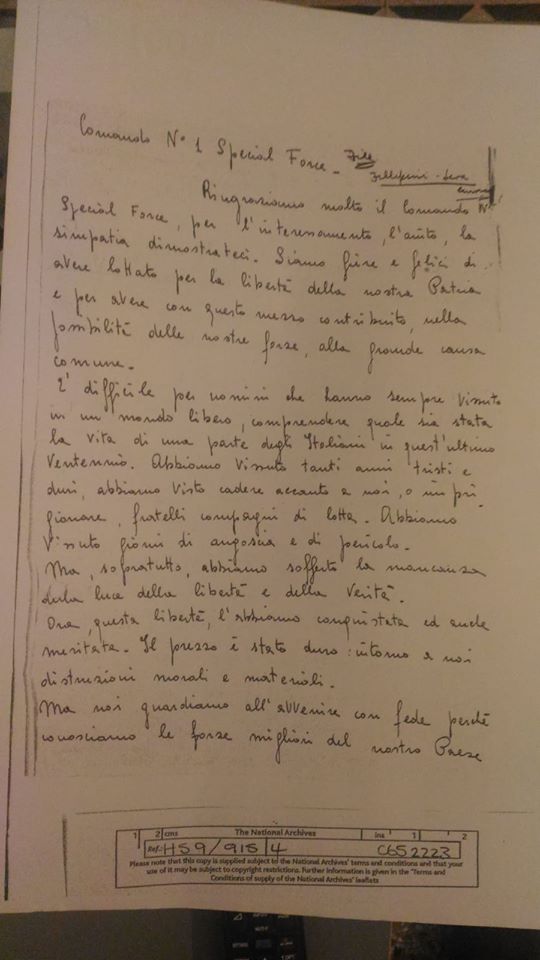 Comando N° 1 Special Force - File
Ringraziamo molto il Comando N°
Special Force, per l'interessamento, l'aiuto, la
simpatia dimostrateci. Siamo fiere e felici di
avere lottato per la libertà della nostra Patria
e per avere con questo mezzo contribuito, nella
possibilità delle nostre forze, alla grande causa
comune.
E' difficile per uomini che hanno sempre vissuto
in un mondo libero, comprendere quale sia stata
la vita di una parte degli Italiani in quest'ultimo
Ventennio. Abbiamo vissuto tanti anni tristi e
duri, abbiamo visto cadere accanto a noi, o im pri
gionare, fratelli compagni di lotta. Abbiamo
vissuto giorni di angoscia e di pericolo.
Ma, sopratutto, abbiamo sofferto la mancanza
della luce della libertà e della Verità.
Ora, questa libertà, l'abbiamo conquistata ed anche
meritata. Il prezzo è stato duro: intorno a noi
distruzioni morali e materiali.
Ma noi guardiamo all'avvenire con fede perché
conosciamo le forze migliori del nostro Paese
1 2 cms The National Archives ins 1 2
Ref.: HS9/915/4 C652223
Please note that this copy is supplied subject to the National Archives' terms and conditions and that your
use of it may be subject to copyright restrictions. Further information is given in the 'Terms and
Conditions of supply of the National Archives' leaflets